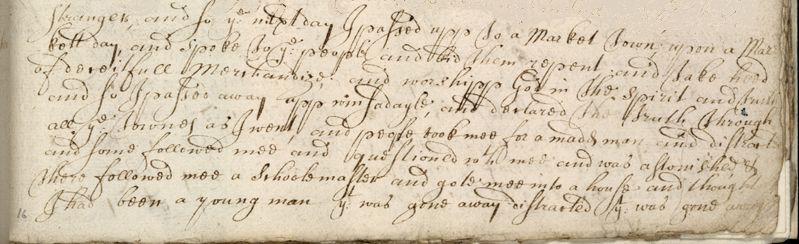 stranger, and so yͤ next day I passed upp to a Market Town upon a Mar
kett day, and spoke to yͤ people and bid them repent and take heed
of deceitfull Merchandize; and worshipp God in the Spirit and truth
and so I passed away upp and declared the truth through
all yͤ townes as I went, and people tooke mee for a mad man and distracted
and some followed mee and questioned with mee and was astonished &
there followed mee a Schoole master and gote mee into a house and thought
I had been a young man yͭ was gone away distracted yͭ was gone away
16